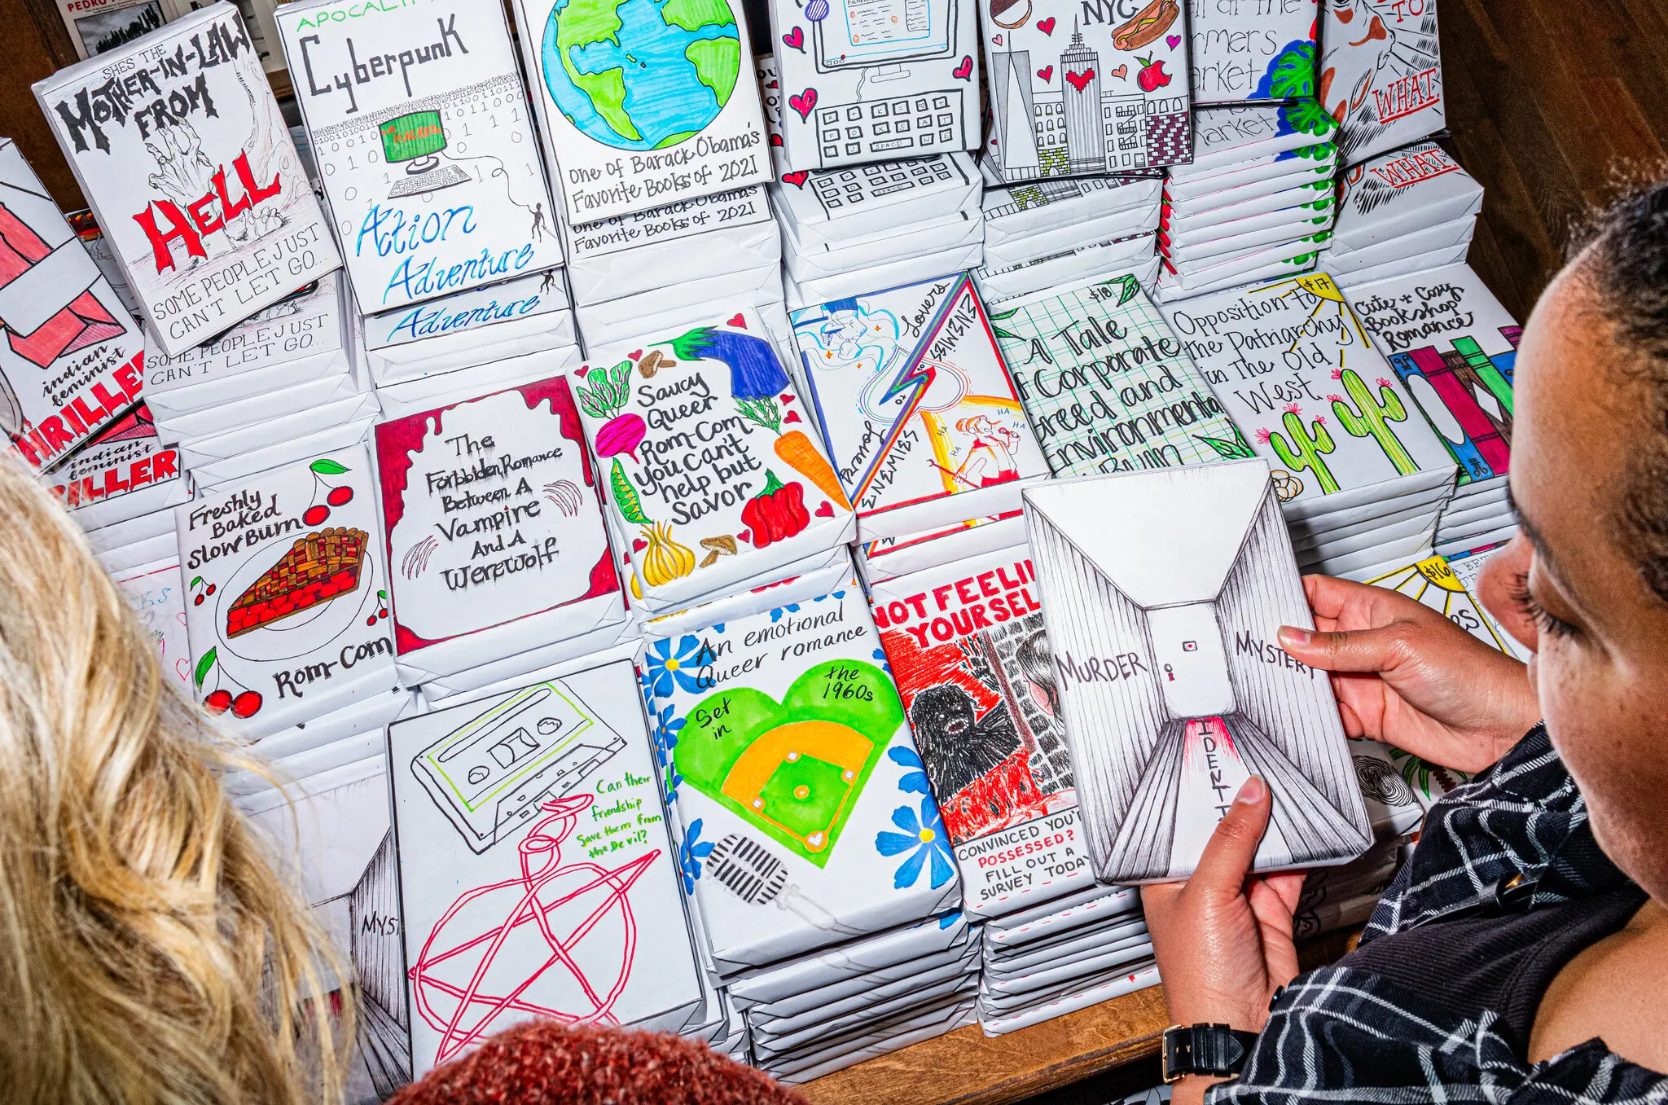 PEDRO
SHE'S THE
MOTHER-IN-LAW
FROM
HELL
SOME PEOPLE JUST
CAN'T LET GO...
SOME PEOPLE JUST
CAN'T LET GO...
Cyberpunk
Action
Adventure
Adventure
One of Barack Obama's
Favorite Books of 2021
One of Barack Obama's
Favorite Books of 2021
SPACE
SPACE
NYC
at the
rmers
arket
market
TO
WHAT
WHAT
indian
feminist
THRILLER
indian
feminist
LLER
Freshly
Baked
Slow Burn
Rom-Com
The
Forbidden Romance
Between A
Vampire
And A
Werewolf
Saucy
Queer
Rom-Com
you can't
help but
Savor
Lovers
ENEMIES
to
ENEMIES
HA
HA
HA
HA
$18
A Tale
of Corporate
Greed and
Environmental
Ruin
$17
Opposition to
the Patriarchy
in The Old
West
Cute + Cozy
Bookshop
Romance
$16
A BE
es
MYS
Can their
friendship
Save them from
the Devil?
An emotional
Queer romance
Set
in
the
1960s
NOT FEELI
YOURSEL
CONVINCED YOU'
POSSESSED?
FILL OUT A
SURVEY TODAY
MURDER
MYSTERY
IDENTI